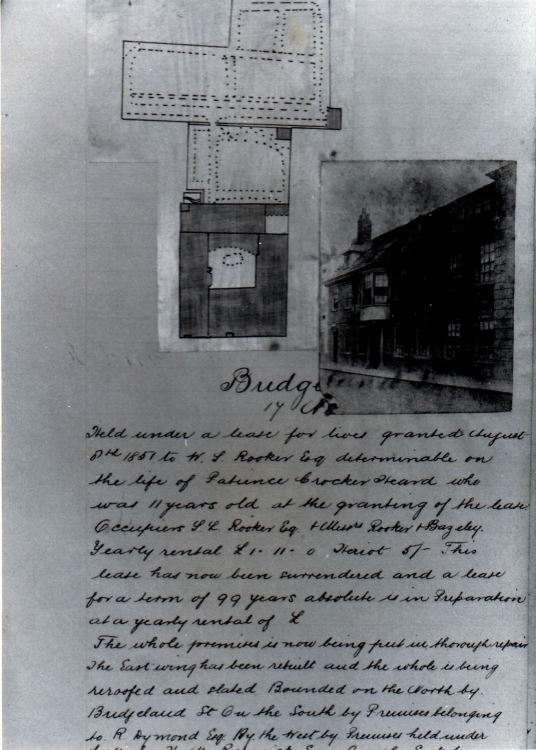 Bridge
17
Held under a lease for lives granted August
8th 1851 to W. L. Rooker Esq determinable on
the life of Patience Crocker Heard who
was 11 years old at the granting of the lease
Occupiers S L Rooker Esq. & Messrs Rooker & Bazeley.
Yearly rental £1-11-0 Heriot 5/- This
lease has now been surrendered and a lease
for a term of 99 years absolute is in Preparation
at a yearly rental of £
The whole premises is now being put in thorough repair
The East wing has been rebuilt and the whole is being
reroofed and slated Bounded on the North by.
Bridgeland St On the South by Premises belonging
to. R Dymond Esq By the West by Premises held under